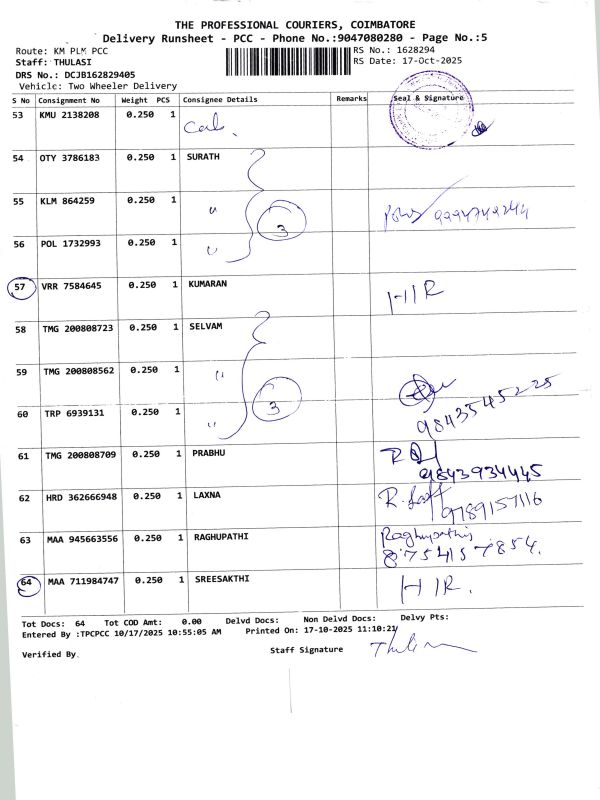 THE PROFESSIONAL COURIERS, COIMBATORE
Delivery Runsheet - PCC - Phone No.:9047080280 - Page No.:5
Route: KM PLM PCC RS No.: 1628294
Staff: THULASI RS Date: 17-Oct-2025
DRS No.: DCJB162829405
Vehicle: Two Wheeler Delivery
S No Consignment No Weight PCS Consignee Details Remarks Seal & Signature
53 KMU 2138208 0.250 1
54 OTY 3786183 0.250 1 SURATH
55 KLM 864259 0.250 1 "
3
56 POL 1732993 0.250 1 "
57 VRR 7584645 0.250 1 KUMARAN HIR
58 TMG 200808723 0.250 1 SELVAM
59 TMG 200808562 0.250 1 "
3 9843545225
60 TRP 6939131 0.250 1 "
61 TMG 200808709 0.250 1 PRABHU
9843934445
62 HRD 362666948 0.250 1 LAXNA 9789157116
63 MAA 945663556 0.250 1 RAGHUPATHI Raghupathi
8754157854.
64 MAA 711984747 0.250 1 SREESAKTHI HIR.
Tot Docs: 64 Tot COD Amt: 0.00 Delvd Docs: Non Delvd Docs: Delvy Pts:
Entered By :TPCPCC 10/17/2025 10:55:05 AM Printed On: 17-10-2025 11:10:21
Verified By. Staff Signature